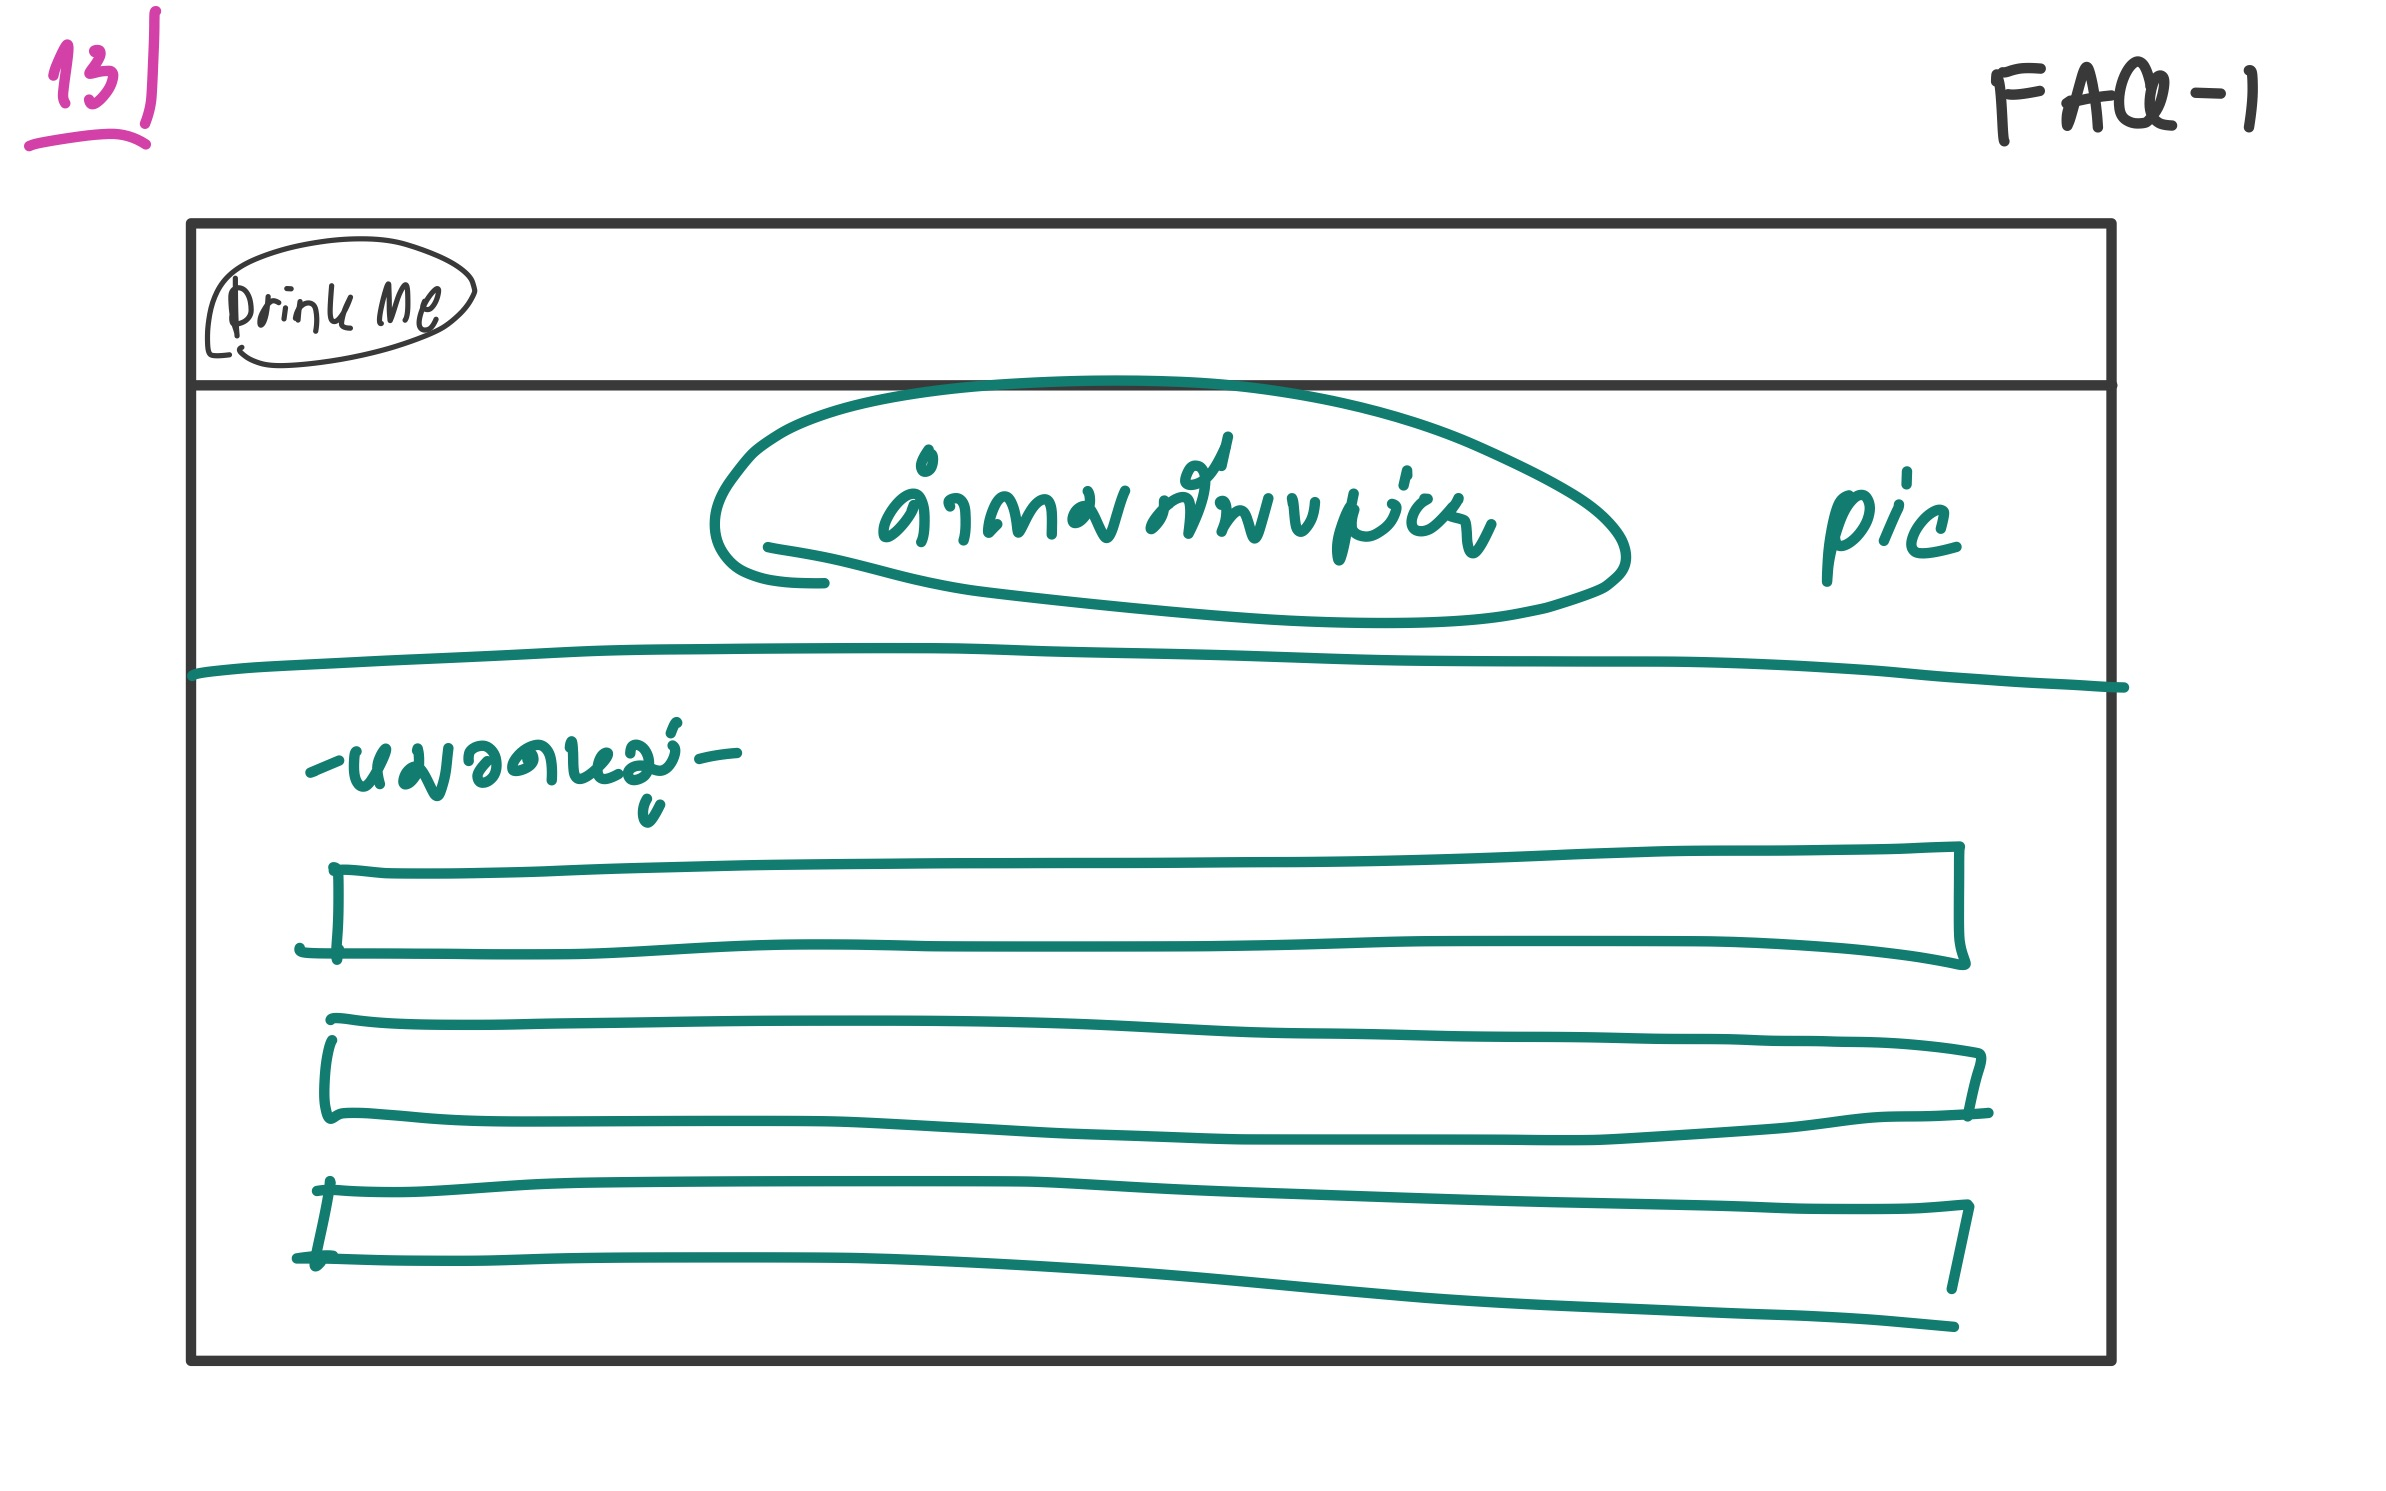 13
FAQ-1
Drink Me
คำถามที่พบบ่อย
pic
-หมวดหมู่-